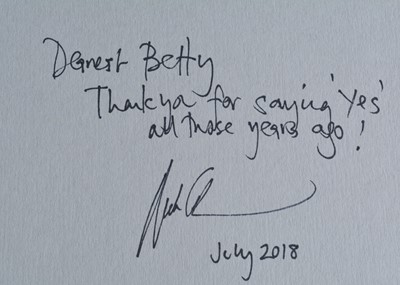 Dearest Betty
Thank you for saying 'Yes'
all those years ago!
July 2018